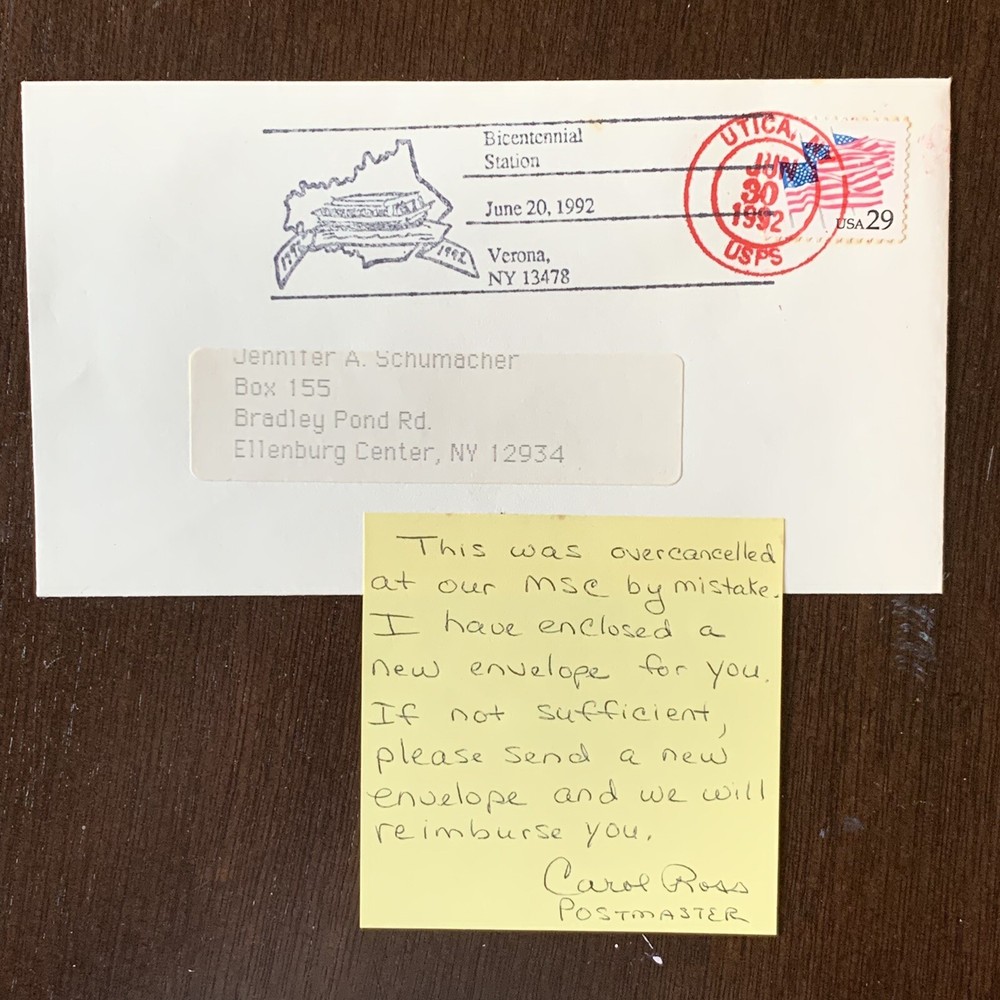 Bicentennial
Station
June 20, 1992
Verona,
NY 13478
1992
UTICA, NY
JUN
30
1992
USPS
USA 29
Jennifer A. Schumacher
Box 155
Bradley Pond Rd.
Ellenburg Center, NY 12934
This was overcancelled
at our MSC by mistake.
I have enclosed a
new envelope for you.
If not sufficient,
please send a new
envelope and we will
reimburse you.
Carol Ross
POSTMASTER